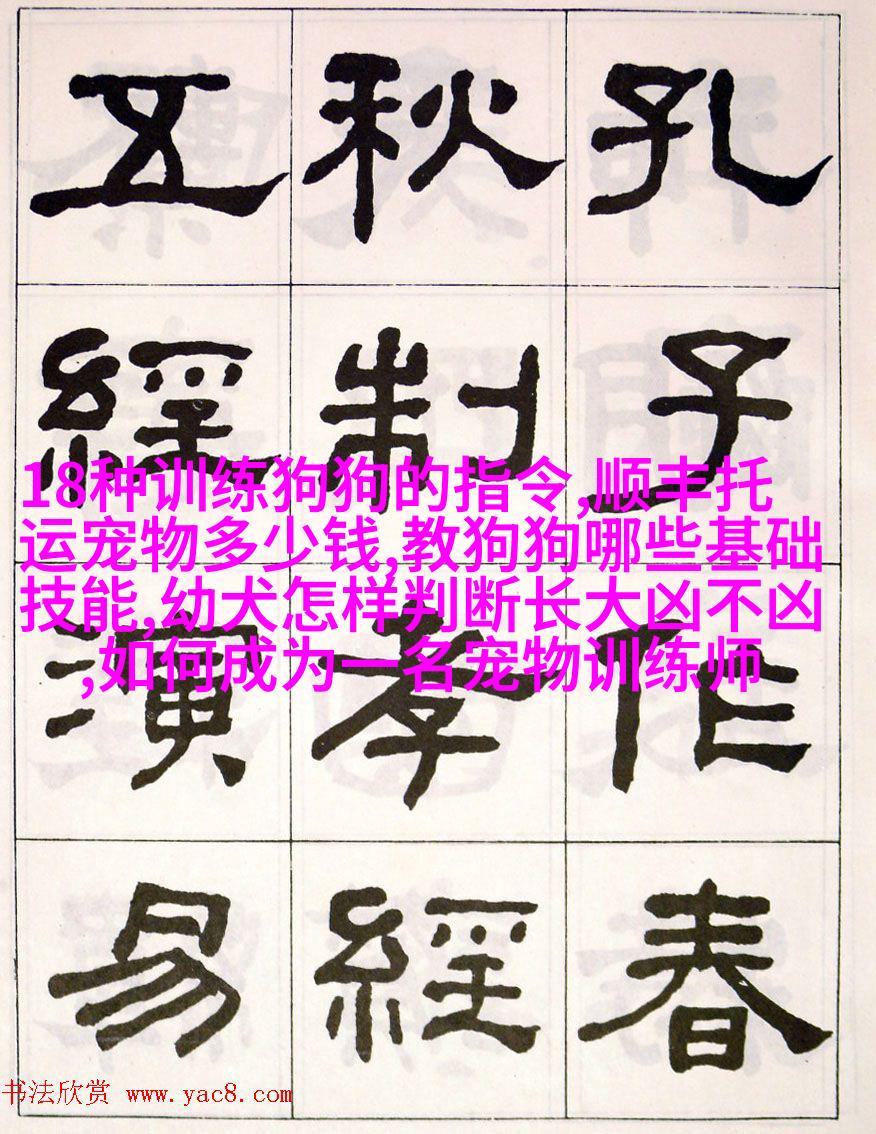 孔子作春
秋制孝經
五經演易
18种训练狗狗的指令,顺丰托
运宠物多少钱,教狗狗哪些基础
技能,幼犬怎样判断长大凶不凶
,如何成为一名宠物训练师
书法欣赏 www.yac8.com